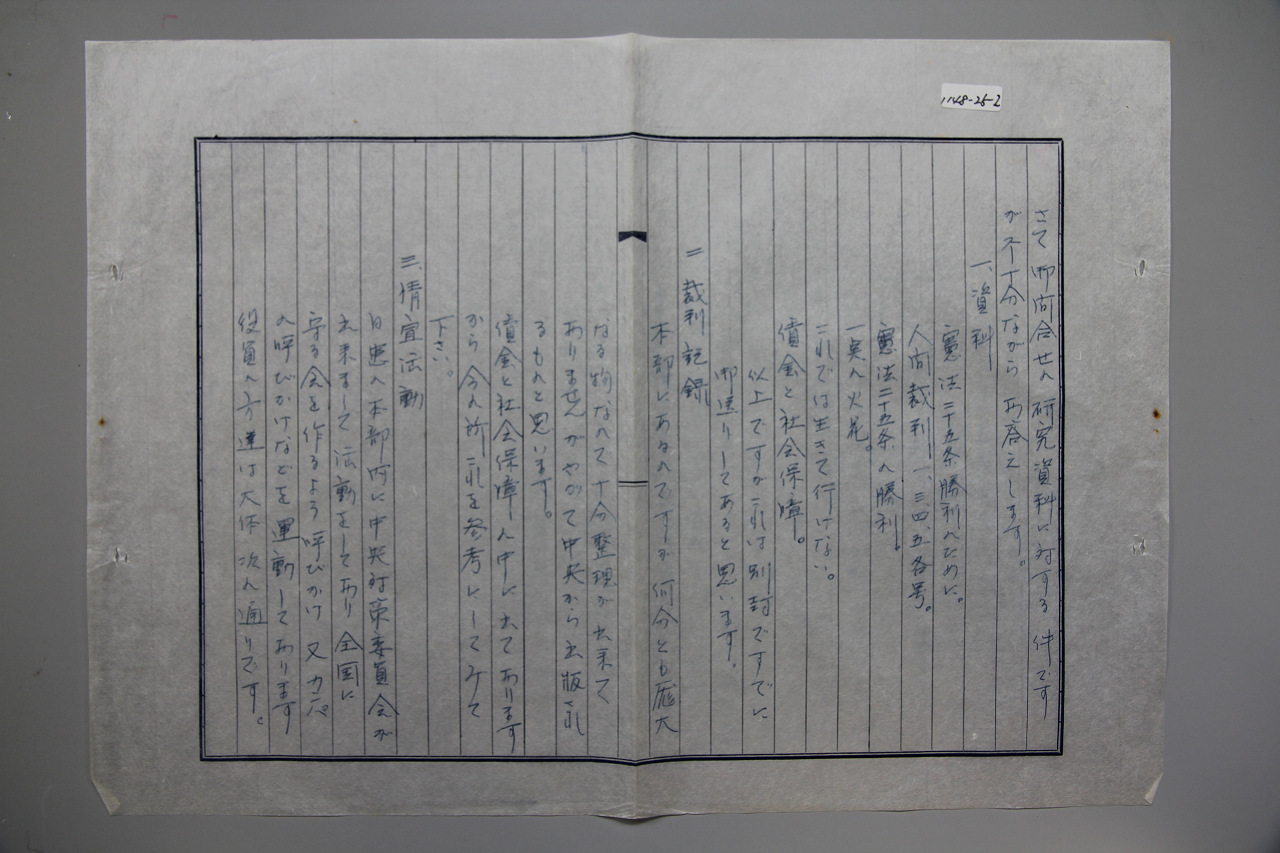 1148-25-2
さて 御問合せの 研究資料に対する 件です
が不十分ながら お答えします。
一、資料
憲法二十五条勝利のために。
人間裁判 一、三、四、五各号。
憲法二十五条の勝利。
一点の火花。
これでは生きて行けない。
賃金と社会保障。
以上ですがこれは別封ですでに
御送りしてあると思います。
二 裁判記録
本部にあるのですが 何分とも厖大
なる物なので十分整理が出来て
ありませんがやがて中央から出版され
るものと思います。
賃金と社会保障の中に出てあります
から 今の所これを参考にしてみて
下さい。
三、情宣活動
日患の本部内に中央対策委員会が
出来まして活動をしており全国に
守る会を作るよう呼びかけ 又カンパ
の呼びかけなどを運動しております
役員の方達は大体次の通りです。